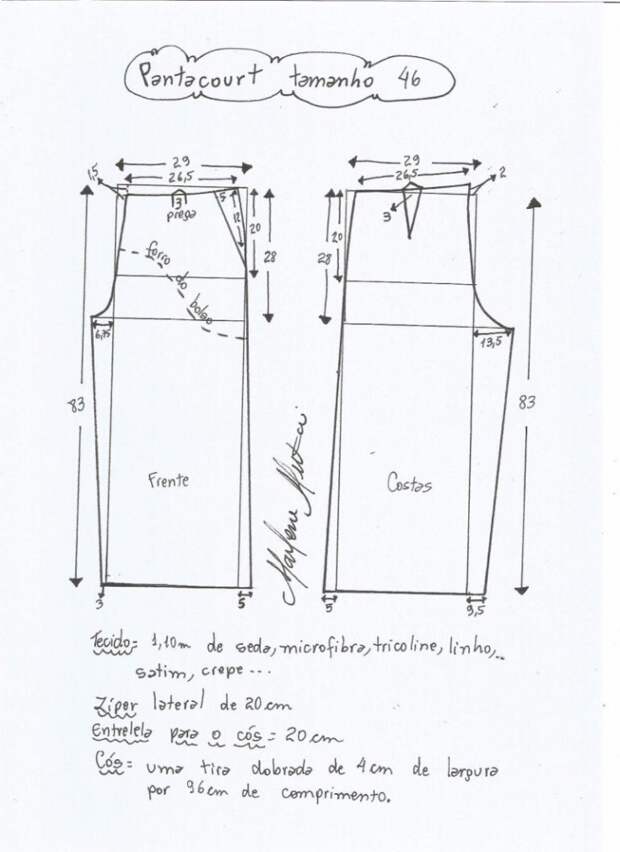 Pantacourt tamanho 46
29
26,5
1,5
3
prega
5
12
20
28
forro do bolso
6,75
83
Frente
3
5
29
26,5
2
3
20
28
13,5
83
Costas
5
9,5
Tecido= 1,10m de seda, microfibra, tricoline, linho,..
satim, crepe...
Zíper lateral de 20cm
Entrelela para o cós = 20cm
Cós= uma tira dobrada de 4cm de largura
por 96cm de comprimento.